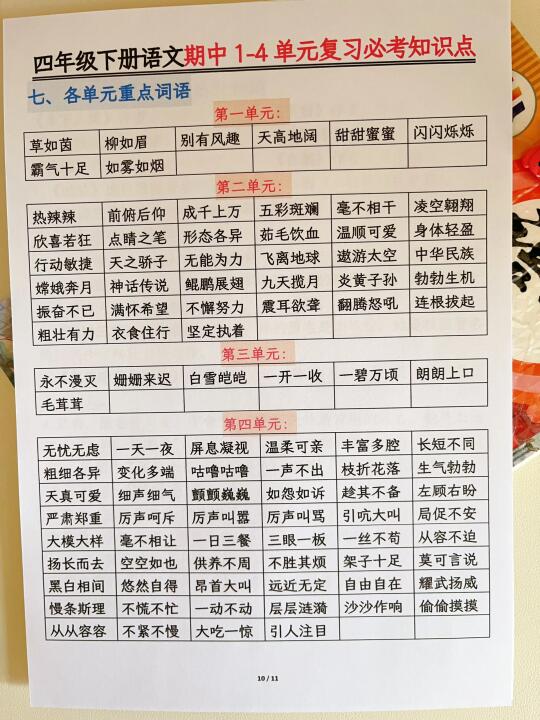 四年级下册语文期中1-4单元复习必考知识点
七、各单元重点词语
第一单元：
草如茵 柳如眉 别有风趣 天高地阔 甜甜蜜蜜 闪闪烁烁
霸气十足 如雾如烟
第二单元：
热辣辣 前俯后仰 成千上万 五彩斑斓 毫不相干 凌空翱翔
欣喜若狂 点睛之笔 形态各异 茹毛饮血 温顺可爱 身体轻盈
行动敏捷 天之骄子 无能为力 飞离地球 遨游太空 中华民族
嫦娥奔月 神话传说 鲲鹏展翅 九天揽月 炎黄子孙 勃勃生机
振奋不已 满怀希望 不懈努力 震耳欲聋 翻腾怒吼 连根拔起
粗壮有力 衣食住行 坚定执着
第三单元：
永不漫灭 姗姗来迟 白雪皑皑 一开一收 一碧万顷 朗朗上口
毛茸茸
第四单元：
无忧无虑 一天一夜 屏息凝视 温柔可亲 丰富多腔 长短不同
粗细各异 变化多端 咕噜咕噜 一声不出 枝折花落 生气勃勃
天真可爱 细声细气 颤颤巍巍 如怨如诉 趁其不备 左顾右盼
严肃郑重 厉声呵斥 厉声叫嚣 厉声叫骂 引吭大叫 局促不安
大模大样 毫不相让 一日三餐 三眼一板 一丝不苟 从容不迫
扬长而去 空空如也 供养不周 不胜其烦 架子十足 莫可言说
黑白相间 悠然自得 昂首大叫 远近无定 自由自在 耀武扬威
慢条斯理 不慌不忙 一动不动 层层涟漪 沙沙作响 偷偷摸摸
从从容容 不紧不慢 大吃一惊 引人注目
10 / 11